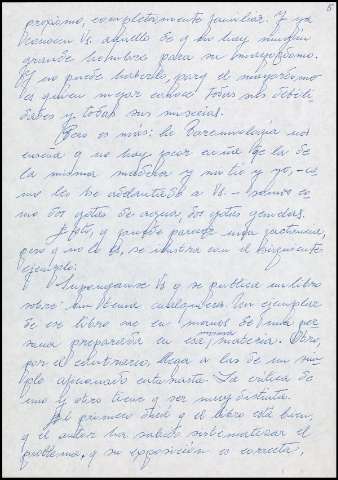 5
propósito, completamente familiar. Y ya
conocen Vs. aquello de q no hay ningún
grande hombre para su mayordomo.
Y no puede haberlo, porq el mayordomo
es quien mejor conoce todas sus debili-
dades y todas sus miserias.
Pero es más: la Paremiología nos
enseña q no hay peor cuña q la de
la misma madera y mi tío y yo, - co-
mo les he adelantado a Vs. - somos co-
mo dos gotas de agua, dos gotas gemelas.
Esto, q puede parecer una jactancia,
pero q no lo es, se ilustra con el siguiente
ejemplo:
Supongamos Vs q se publica un libro
sobre un tema cualquiera. Un ejemplar
de ese libro cae en manos de una per-
sona preparada en esa misma materia. Otro,
por el contrario, llega a las de un sim-
ple aficionado entusiasta. La crítica de
uno y otro tiene q ser muy distinta.
El primero dirá q el libro está bien,
q el autor ha sabido sistematizar el
problema, q su exposición es correcta,